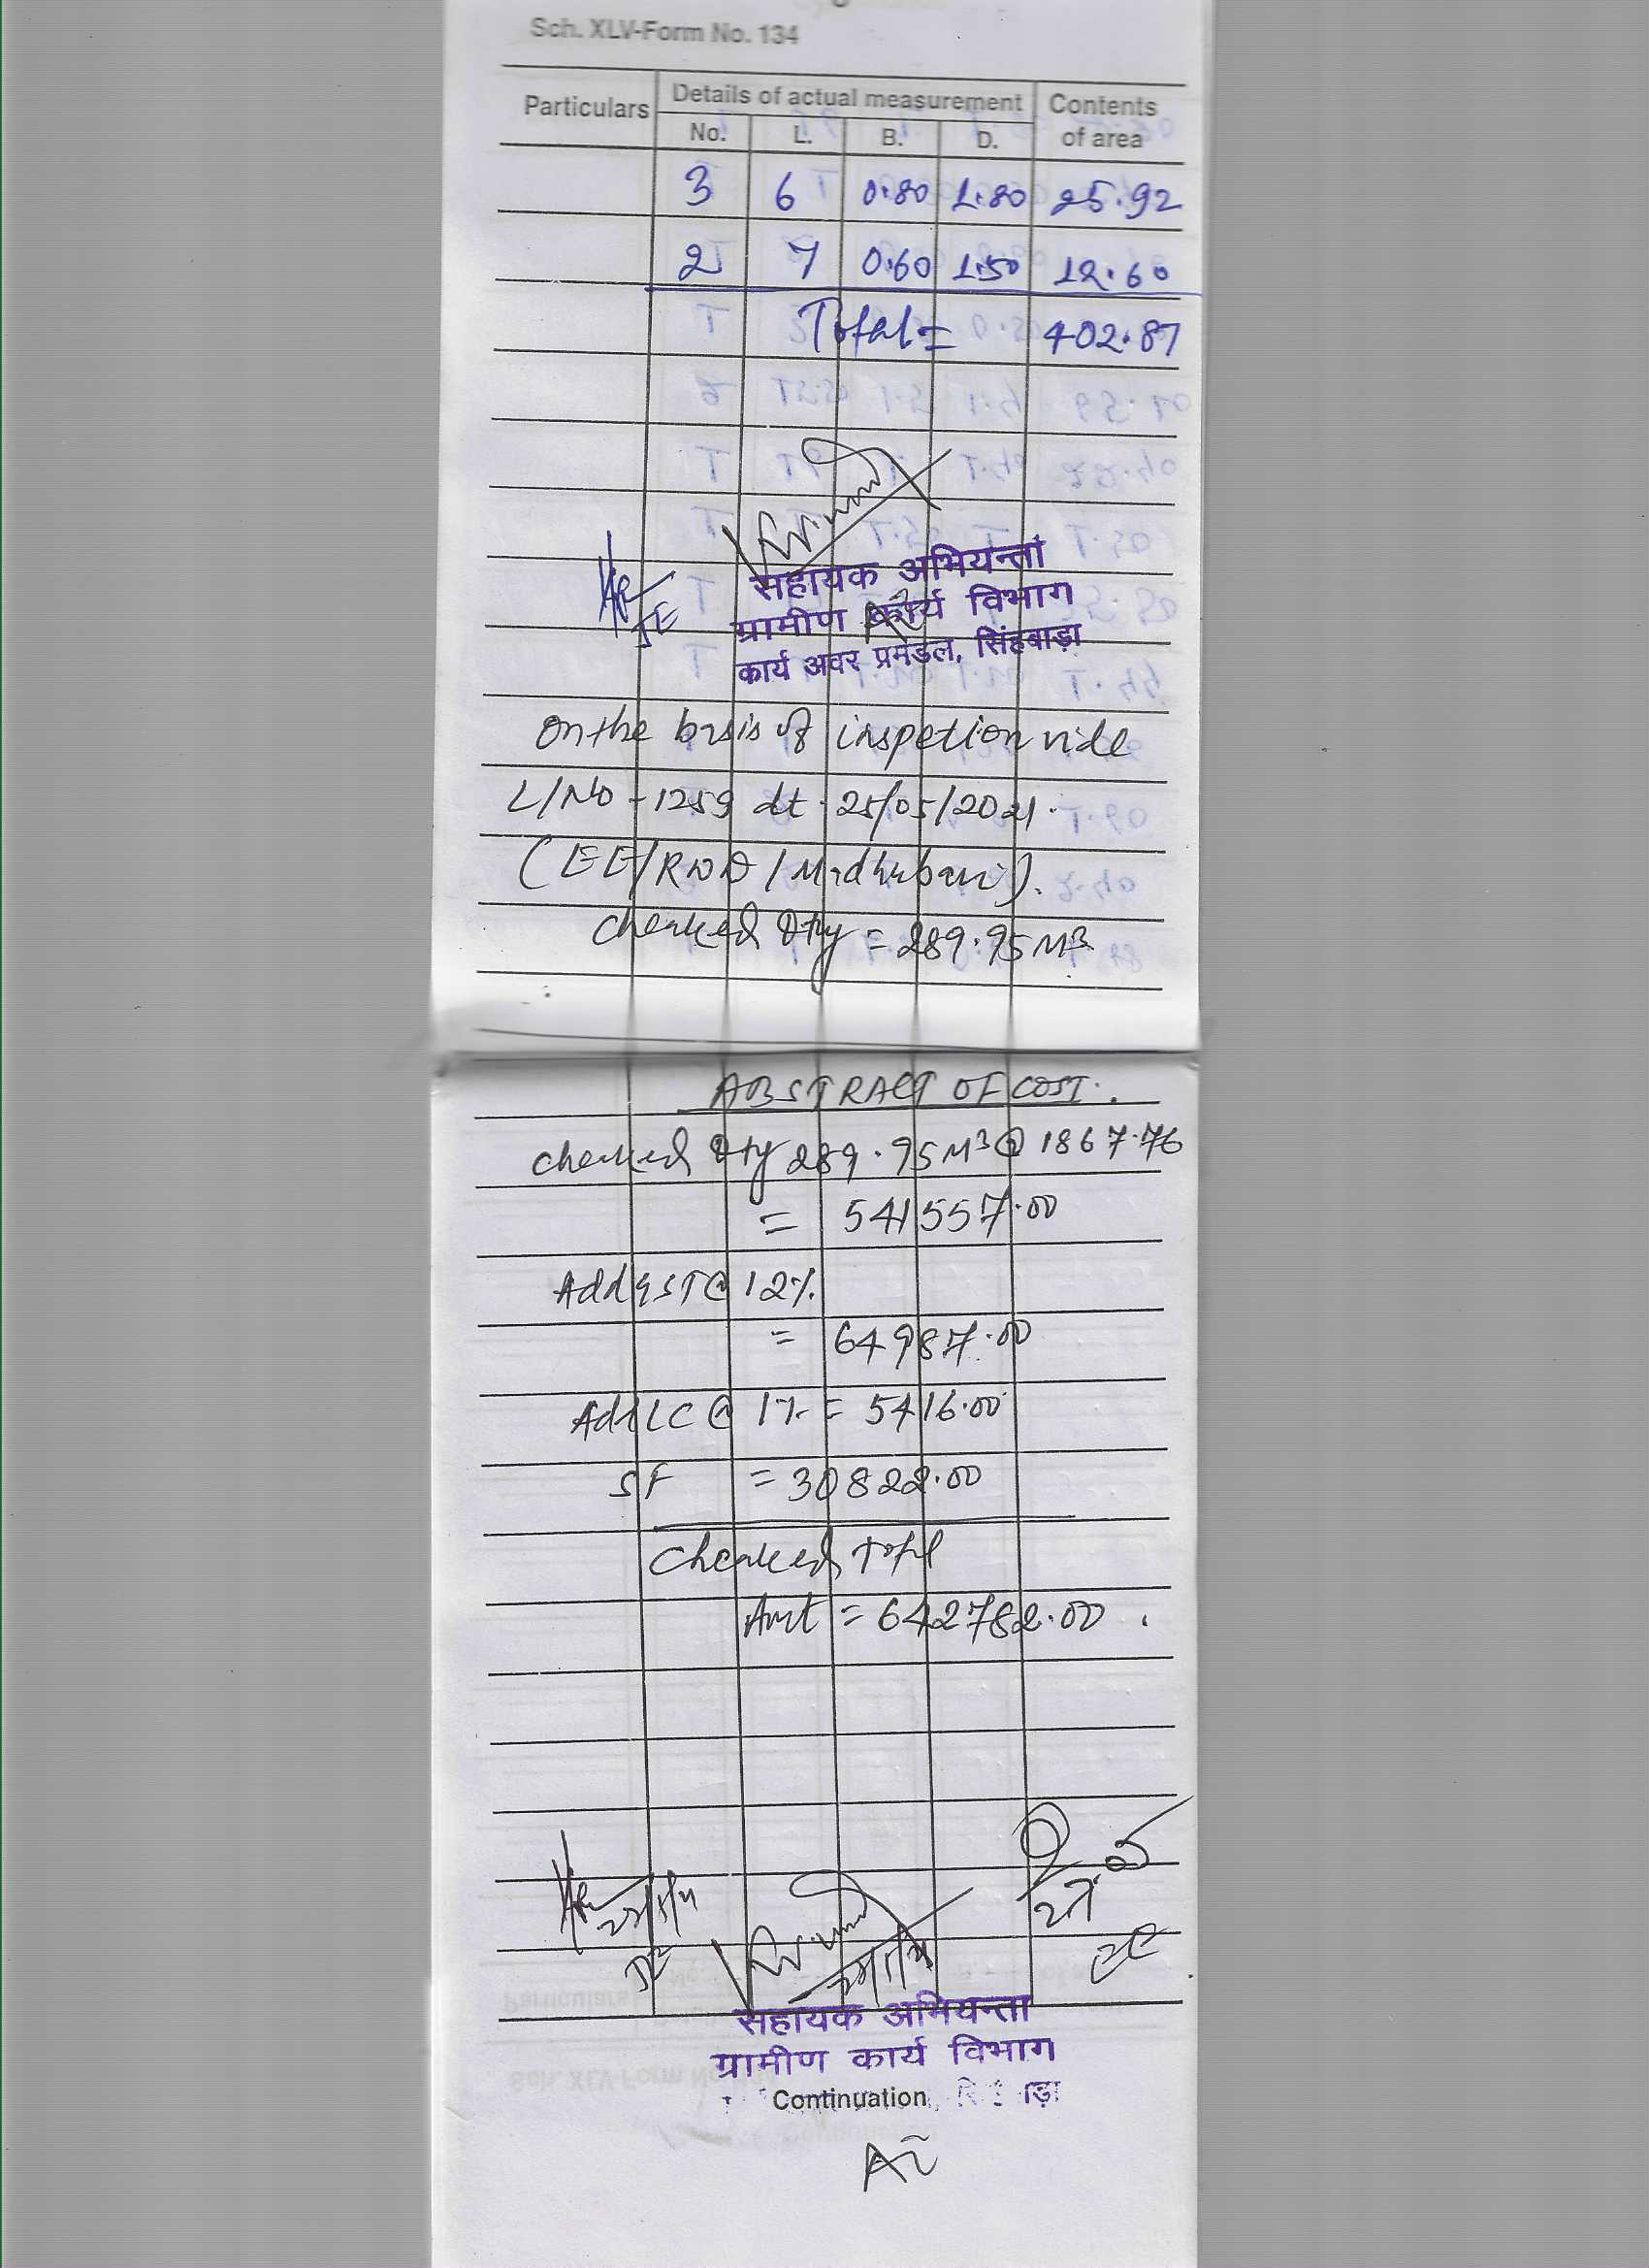 Sch. XLV-Form No. 134
Particulars Details of actual measurement Contents of area
No. L. B. D.
3 6 0.80 1.80 25.92
2 7 0.60 1.50 12.60
Total = 402.87
JE
सहायक अभियन्ता
ग्रामीण कार्य विभाग
कार्य अवर प्रमंडल, सिंहवाड़ा
on the basis of inspetion vide
L/No - 1259 dt. 25/05/2021.
(EE/RWD/Madhubani).
cheaked Qty = 289.95 M³
ABSTRACT OF COST.
cheaked Qty 289.95 M³ @ 1867.76
= 541557.00
Add GST @ 12%.
= 64987.00
Add LC @ 1% = 5416.00
SF = 30822.00
Cheaked Totl
Amt = 642782.00.
JE
EE
सहायक अभियन्ता
ग्रामीण कार्य विभाग
Continuation
AE